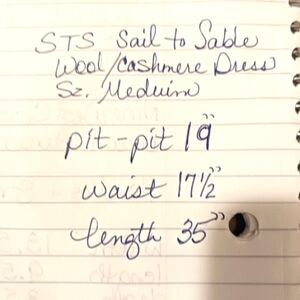 STS Sail to Sable
Wool/Cashmere Dress
Sz. Meduim
pit-pit 19"
waist 17½"
length 35"